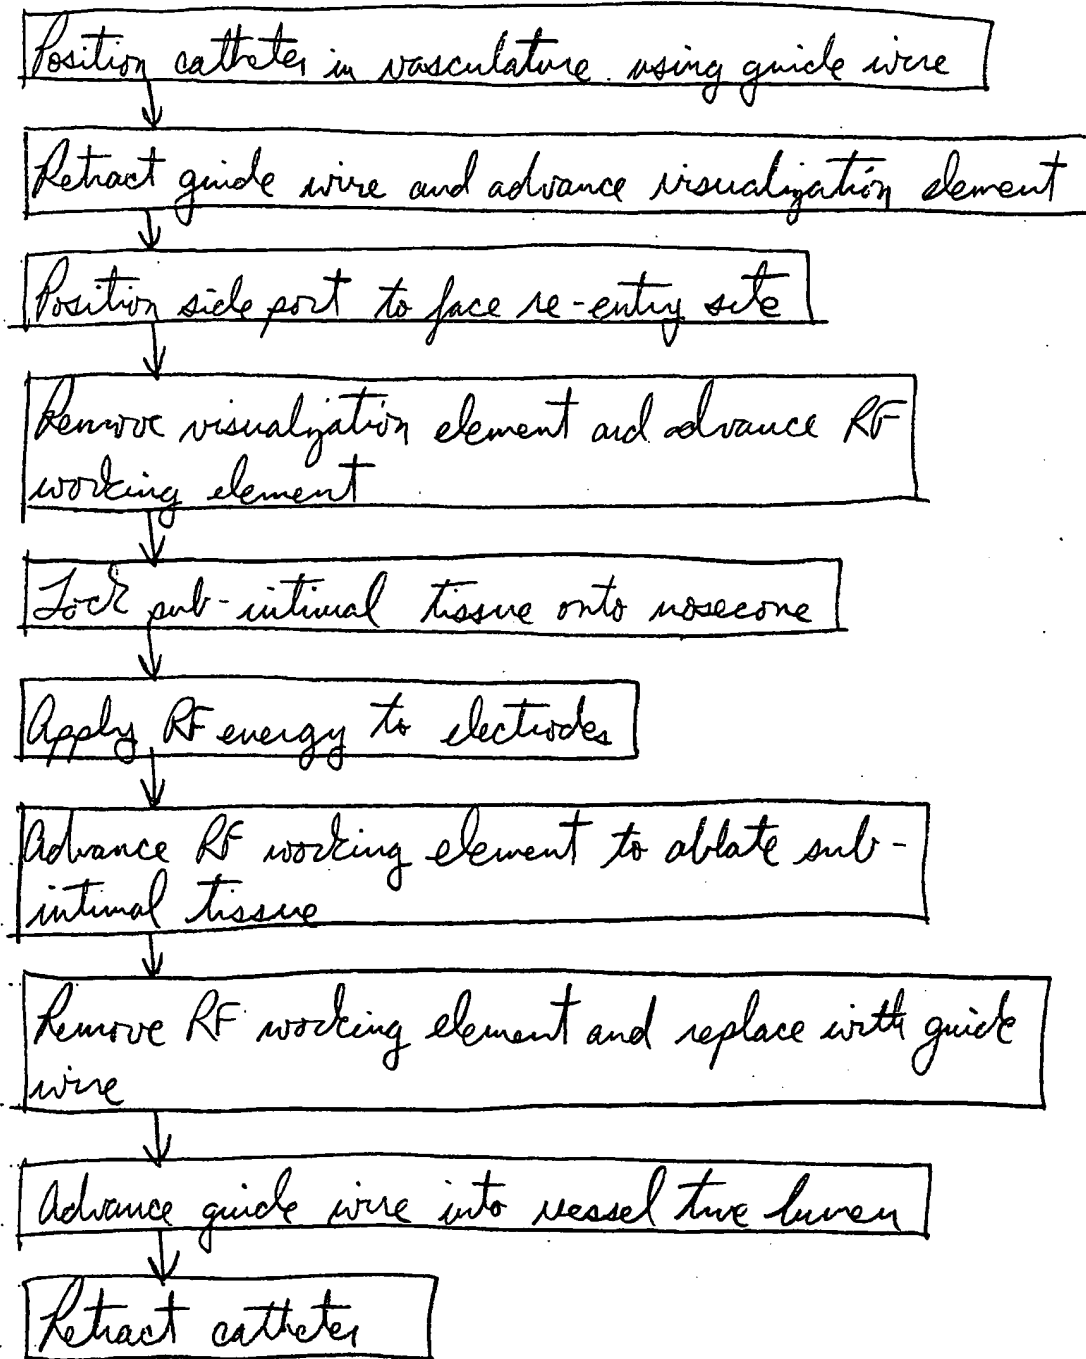 Position catheter in vasculature using guide wire
Retract guide wire and advance visualization element
Position side port to face re-entry site
Remove visualization element and advance RF
working element
Lock sub-intimal tissue onto nosecone
Apply RF energy to electrodes
Advance RF working element to ablate sub-
intimal tissue
Remove RF working element and replace with guide
wire
Advance guide wire into vessel true lumen
Retract catheter